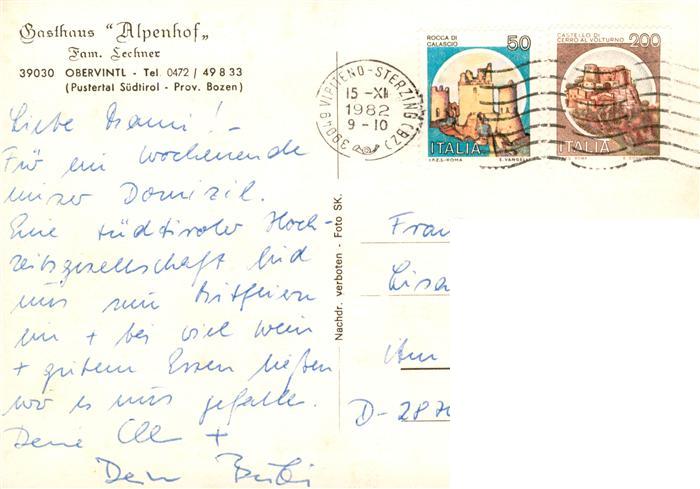 Gasthaus "Alpenhof„
Fam. Lechner
39030 OBERVINTL - Tel. 0472 / 49 8 33
(Pustertal Südtirol - Prov. Bozen)
Liebe Mami! -
Für ein Wochenende
unser Domizil.
Eine südtiroler Hoch-
zeitsgesellschaft lud
uns zum Mitfeiern
ein + bei viel Wein
+ gutem Essen ließen
wir es uns gefallen.
Deine +
Dein
Nachdr. verboten - Foto SK.
39049 VIPITENO-STERZING (BZ)
15 -XI
1982
9 - 10
ROCCA DI
CALASCIO
50
ITALIA
I.P.Z.S.-ROMA E. VANGELLI
CASTELLO DI
CERRO AL VOLTURNO
200
ITALIA
Frau
Lisa
Am
D-287